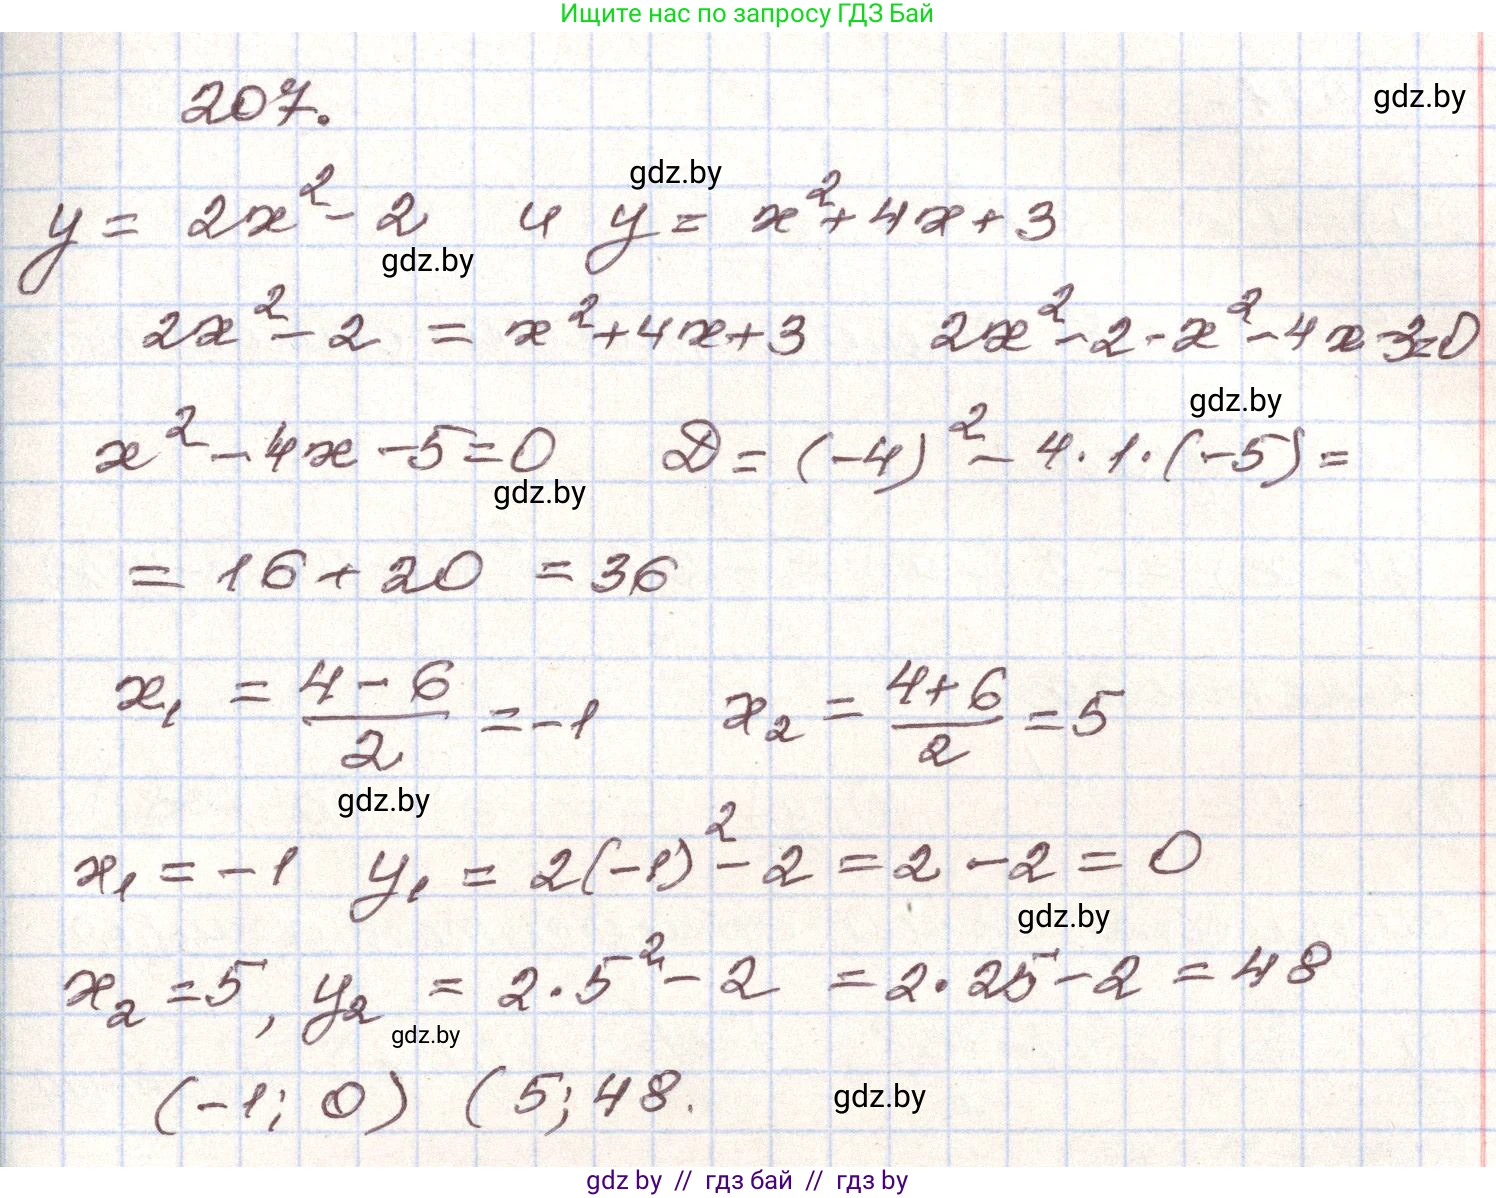 Ищите нас по запросу ГДЗ Бай
207.
gdz.by
gdz.by
y = 2x² - 2 и y = x² + 4x + 3
gdz.by
2x² - 2 = x² + 4x + 3 2x² - 2 - x² - 4x - 3 = 0
gdz.by
x² - 4x - 5 = 0 D = (-4)² - 4 · 1 · (-5) =
gdz.by
= 16 + 20 = 36
x₁ = (4 - 6)/2 = -1 x₂ = (4 + 6)/2 = 5
gdz.by
x₁ = -1 y₁ = 2(-1)² - 2 = 2 - 2 = 0
gdz.by
x₂ = 5, y₂ = 2 · 5² - 2 = 2 · 25 - 2 = 48
gdz.by
(-1; 0) (5; 48.
gdz.by
gdz by // гдз бай // гдз by